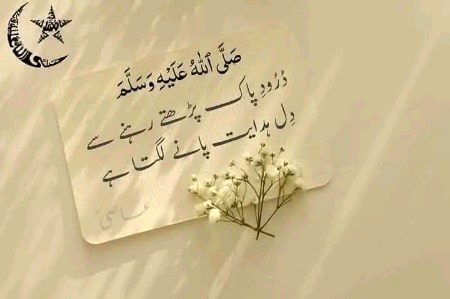 صَلَّی اللّٰہُ عَلَیْہِ وَسَلَّمَ
دُرُودِ پاک پڑھتے رہنے سے
دِل ہدایت پانے لگتا ہے
عاصیؔ